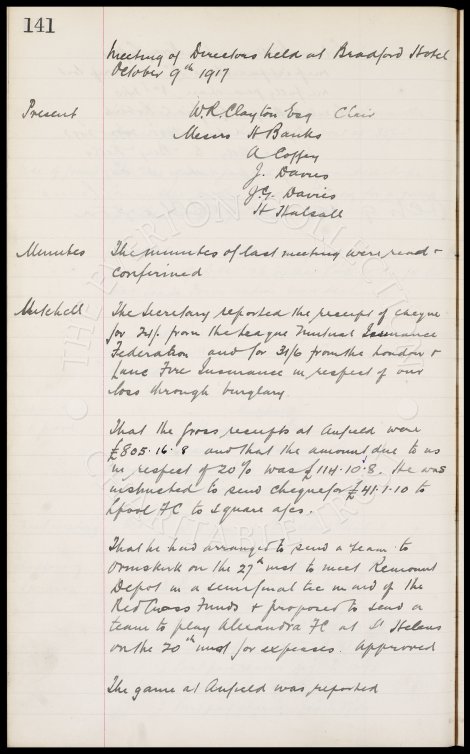 141
Meeting of Directors held at Bradford Hotel
October 9th 1917
Present W.R. Clayton Esq Chair
Messrs H Banks
A Coffey
J. Davies
J.G. Davies
H Halsall
Minutes The minutes of last meeting were read +
confirmed
Mitchell The Secretary reported the receipt of cheque
for 74/- from the League Mutual Insurance
Federation and for 31/6 from the London +
Lanc Fire Insurance in respect of our
loss through burglary.
That the Gross receipts at Anfield were
£805.16.8 and that the amount due to us
in respect of 20% was £114.10.8. He was
instructed to send cheque for £41.1.10 to
Lpool FC to square a/cs.
That he had arranged to send a team to
Ormskirk on the 27th inst to meet Remount
Depot in a semifinal tie in aid of the
Red Cross Funds + proposed to send a
team to play Alexandra FC at St Helens
on the 20th inst for expenses. Approved
The game at Anfield was reported
THE EVERTON COLLECTION
CHARITABLE TRUST